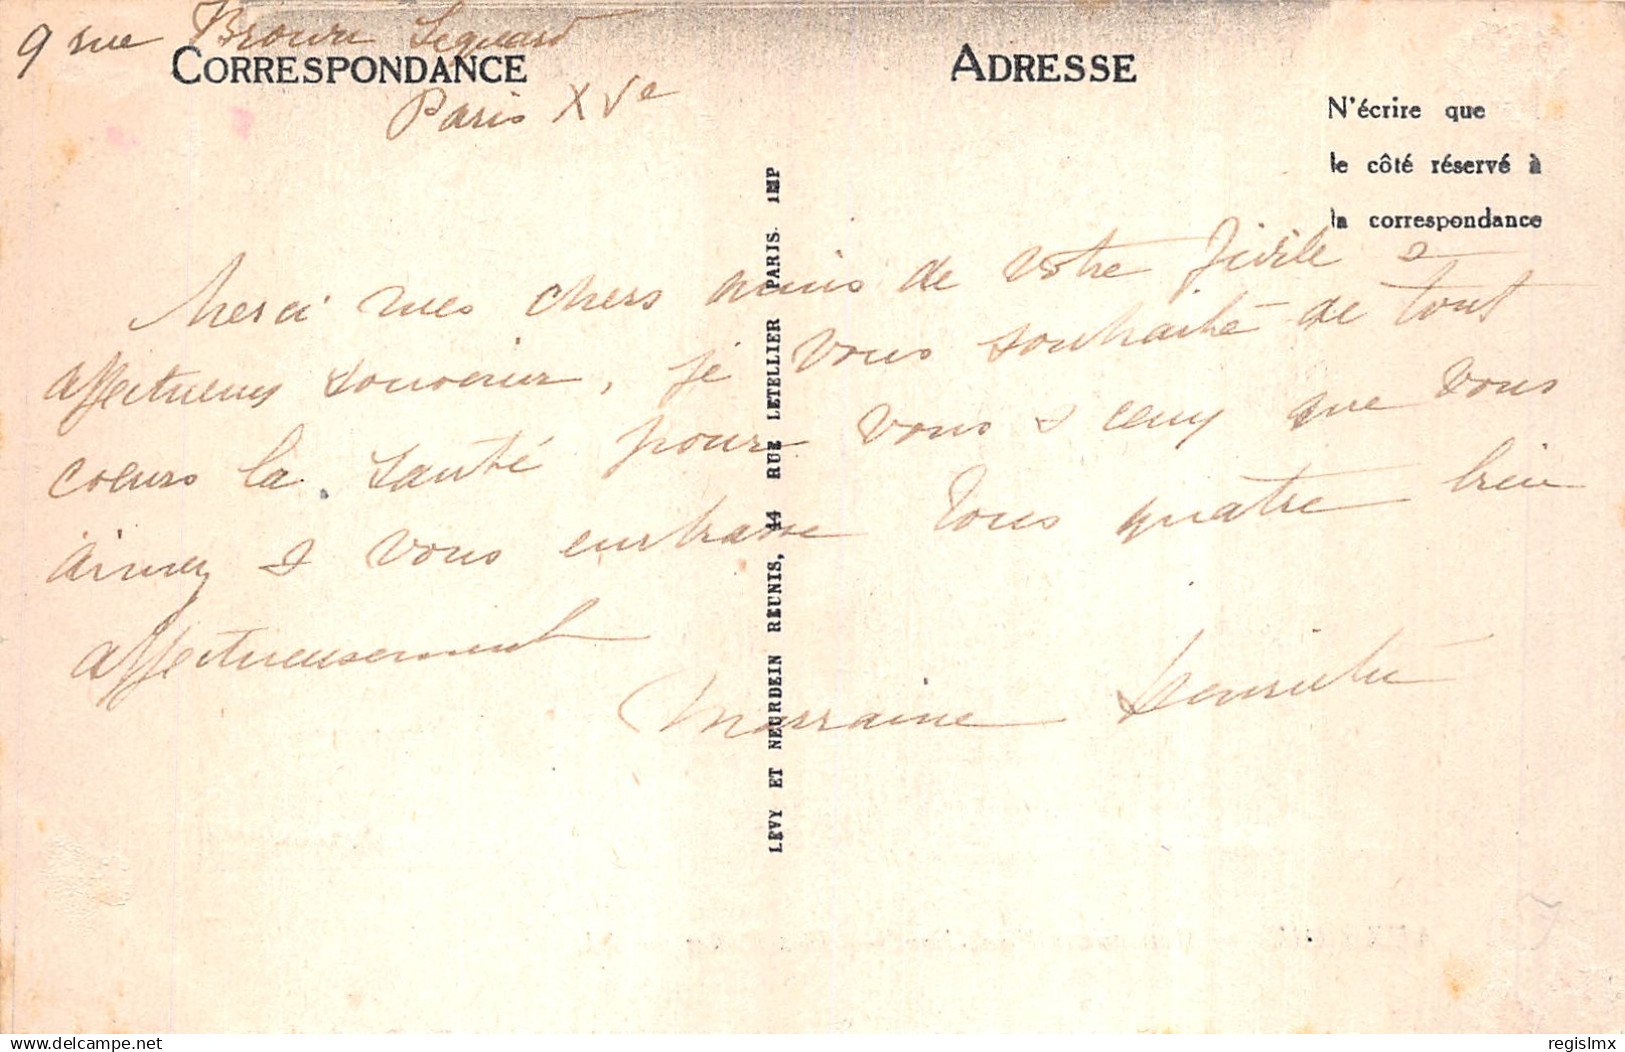 9 rue Brown Sequard
CORRESPONDANCE
Paris XVe
ADRESSE
N'écrire que
le côté réservé à
la correspondance
Merci mes chers amis de votre si
affectueux souvenir, je vous souhaite de tout
coeurs la santé pour vous & ceux que vous
aimez & vous embrasse tous quatre bien
affectueusement
Marraine
LÉVY ET NEURDEIN RÉUNIS, 44 RUE LETELLIER PARIS. IMP
www.delcampe.net
regislmx